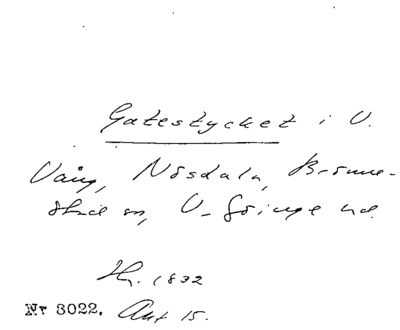 Gatestycket i V.
Vång, Nösdala, Brönne-
stad sn, V. Göinge hd.
Hs. 1832
Nr 3022. Ant 15.